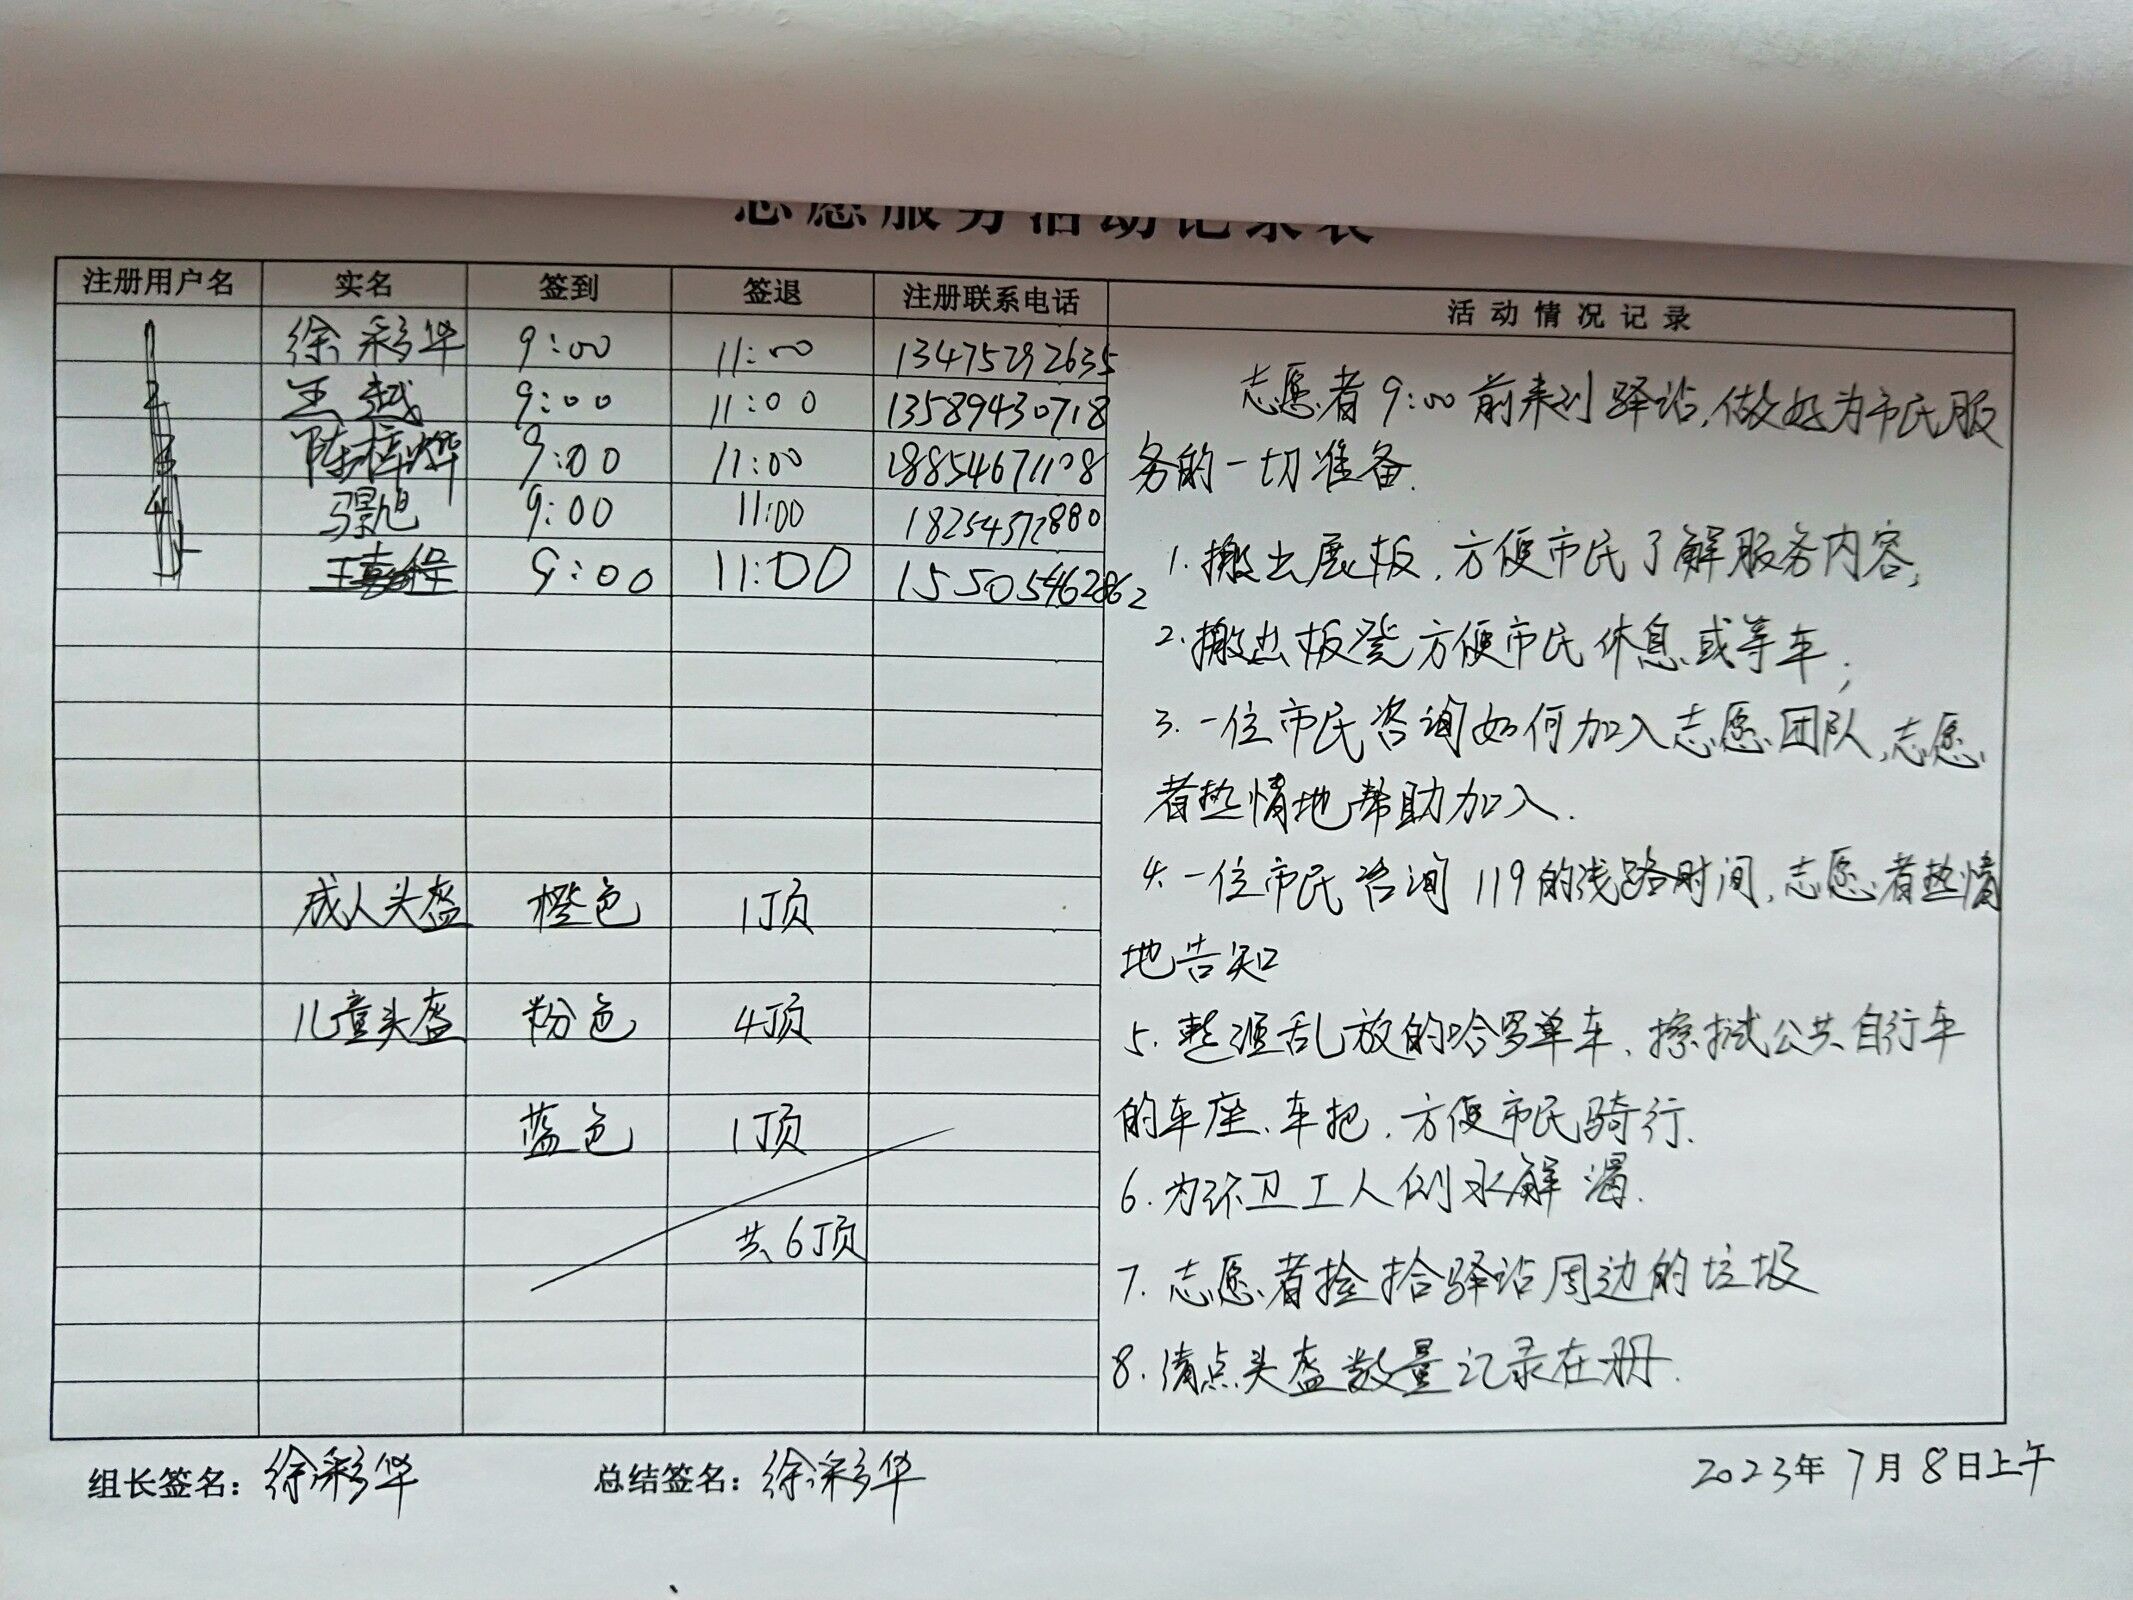 志愿服务活动记录表
注册用户名 实名 签到 签退 注册联系电话 活动情况记录
1 徐彩华 9:00 11:00 13475292635
2 王越 9:00 11:00 13589430718
3 陈梓烨 9:00 11:00 18854671108
4 9:00 11:00 18254372880
5 9:00 11:00 15505462862
成人头盔 橙色 1顶
儿童头盔 粉色 4顶
蓝色 1顶
共6顶
志愿者9:00前来到驿站,做好为市民服
务的一切准备.
1.搬出展板,方便市民了解服务内容;
2.搬出板凳方便市民休息或等车;
3.一位市民咨询如何加入志愿团队,志愿
者热情地帮助加入.
4.一位市民咨询119的线路时间,志愿者热情
地告知
5.整理乱放的哈罗单车、擦拭公共自行车
的车座、车把,方便市民骑行.
6.为环卫工人倒水解渴.
7.志愿者捡拾驿站周边的垃圾
8.清点头盔数量记录在册.
组长签名:徐彩华 总结签名:徐彩华 2023年7月8日上午